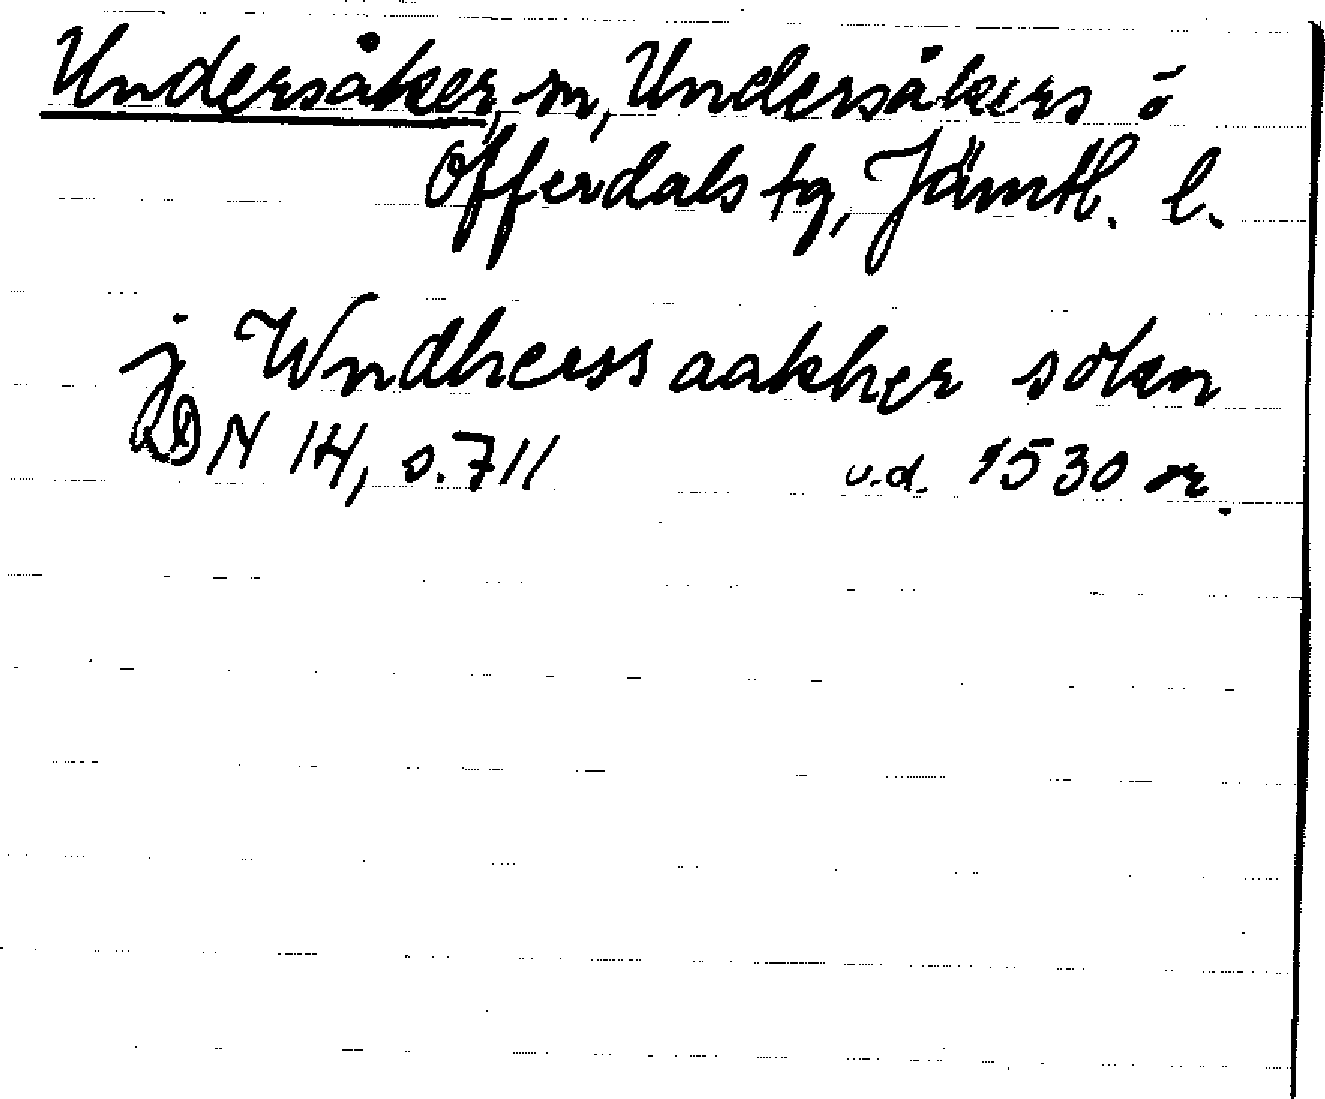 Undersåker, sn, Undersåkers o
Offerdals tg, Jämtl. l.
j Wndherss aakher sokn
DN 14, s. 711 u.d. 1530 or.